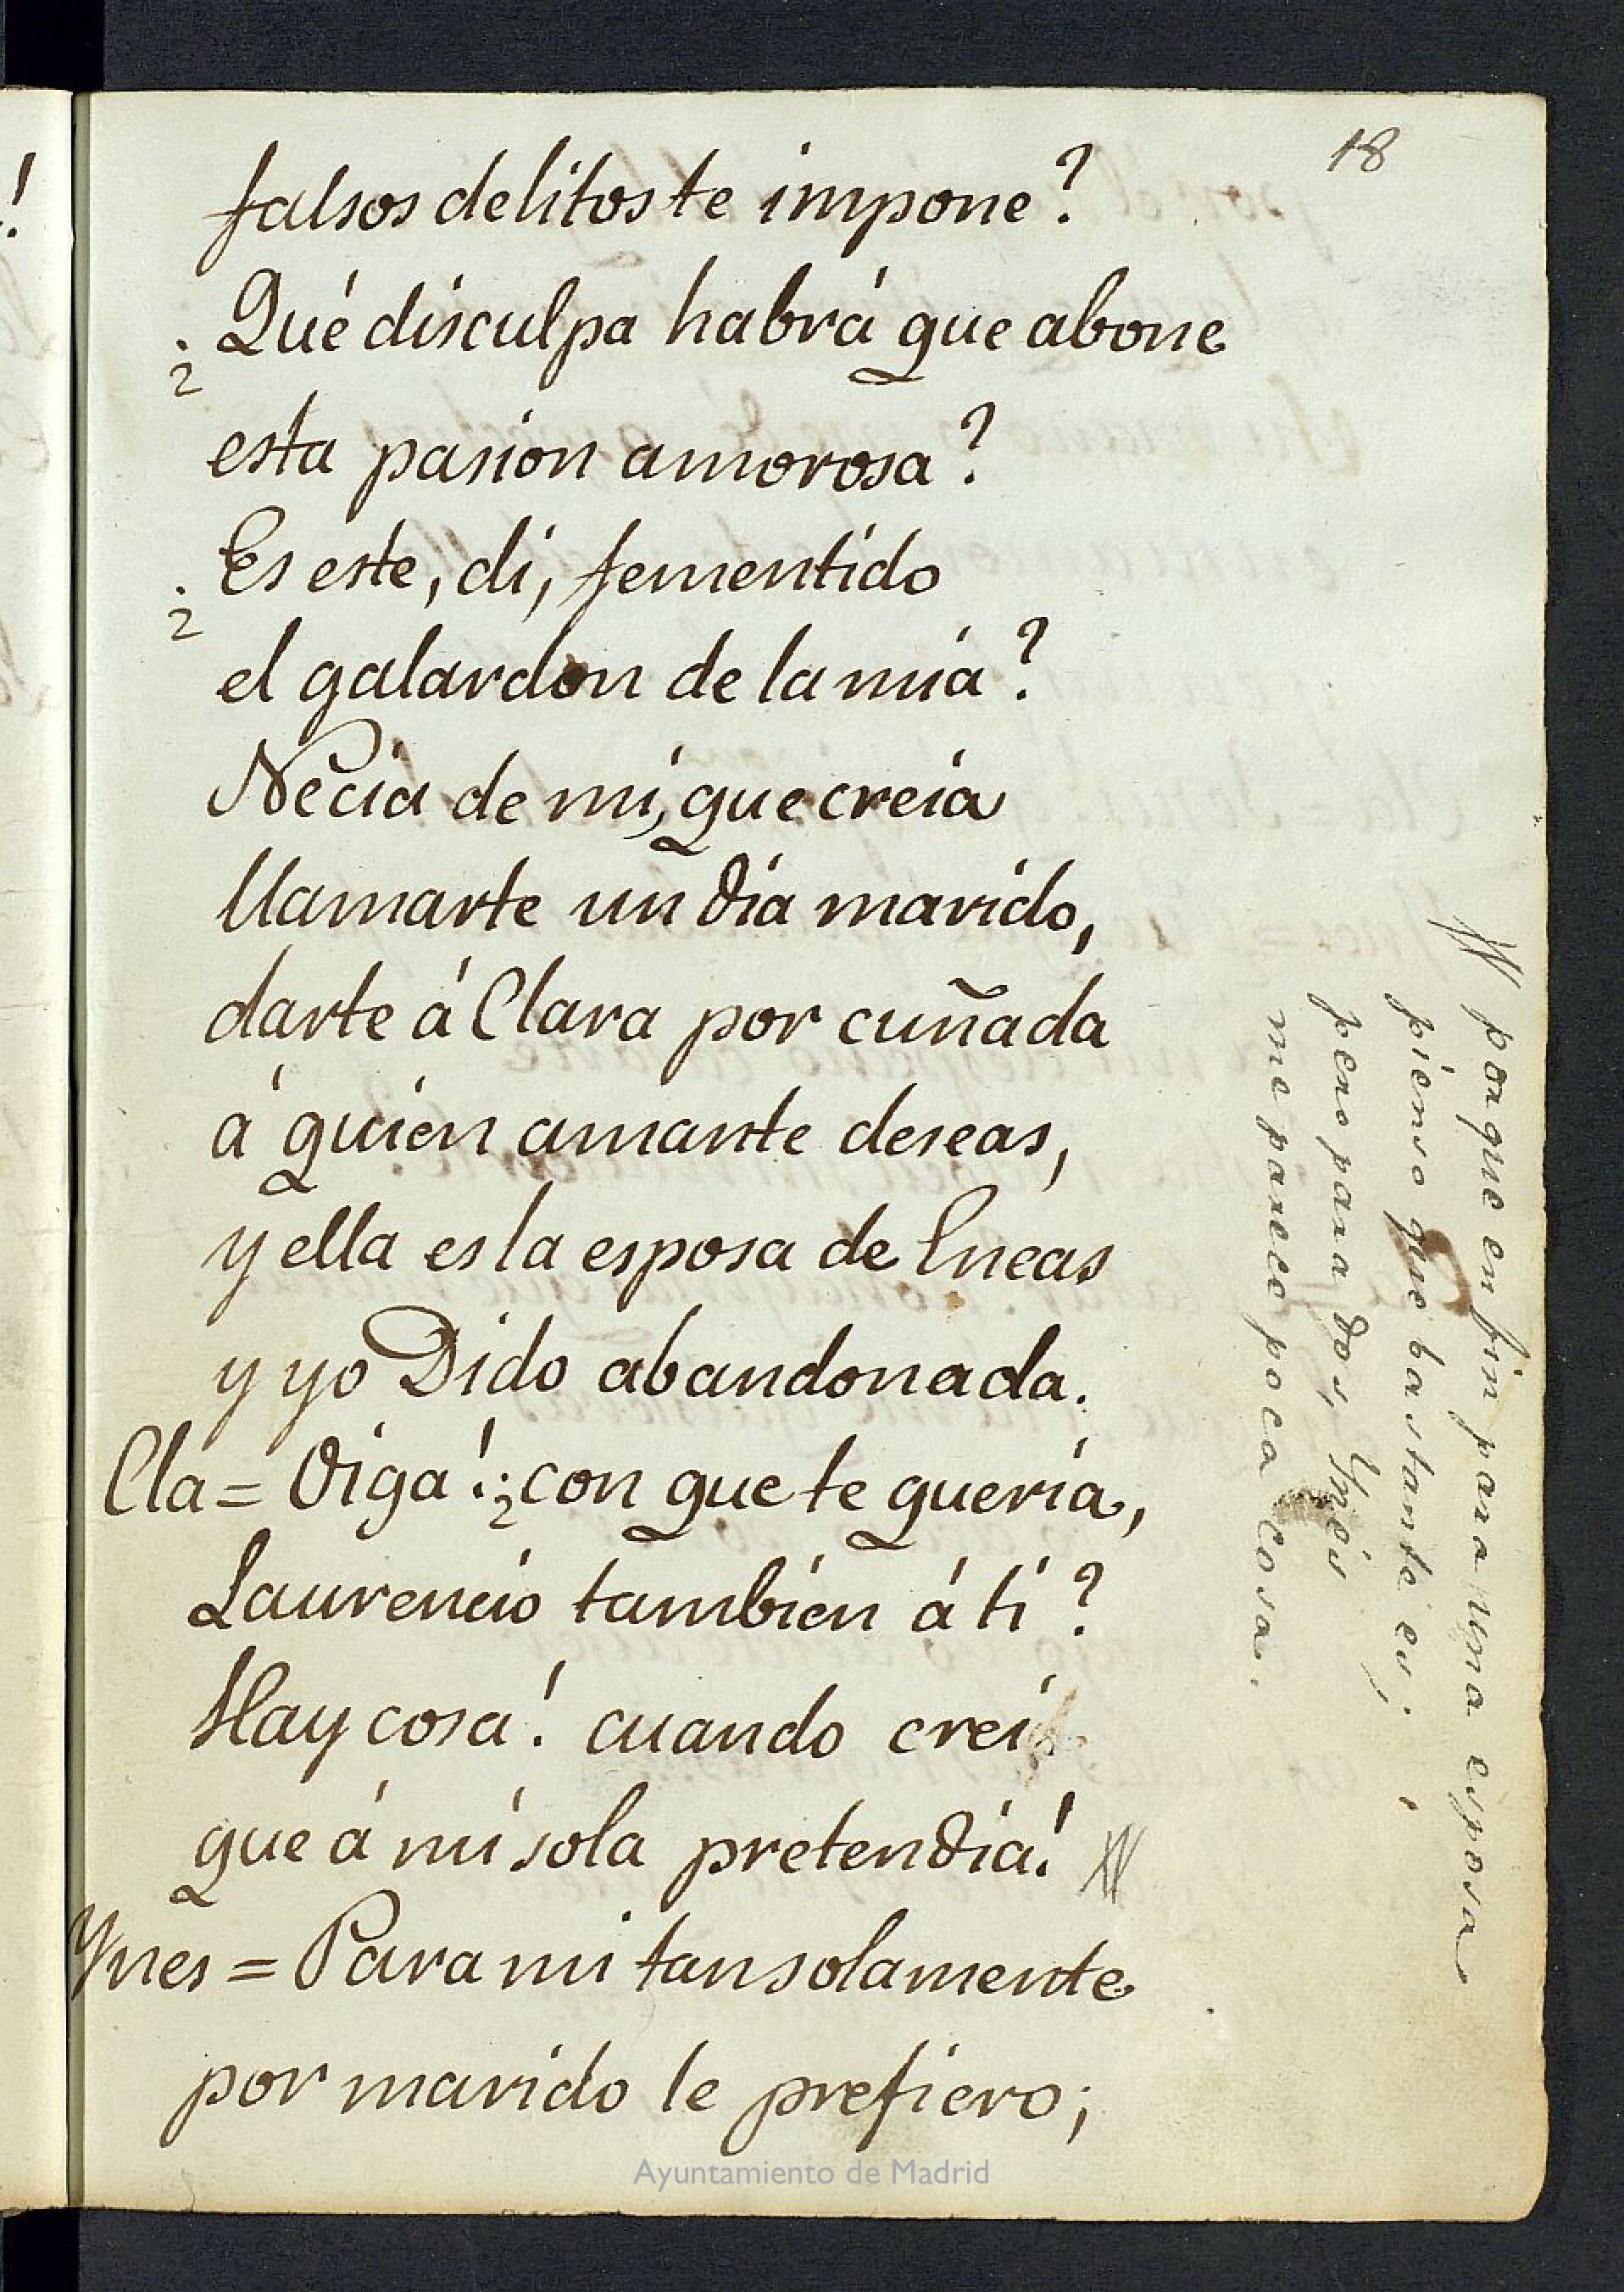 18
falsos delitos te impone?
¿Qué disculpa habrá que abone
esta pasion amorosa?
¿Es este, di, fementido
el galardon de la mia?
Necia de mi, que creia
llamarte un dia marido,
darte á Clara por cuñada
á quien amante deseas,
y ella es la esposa de Eneas
y yo Dido abandonada.
Cla = Oiga! ¿con que te queria,
Laurencio tambien á ti?
Hay cosa! cuando crei
que á mi sola pretendia!
Ynes = Para mi tan solamente
por marido le prefiero;
porque en fin para una esposa
pienso que bastante es;
pero para dos, Ynés
me parece poca cosa.
Ayuntamiento de Madrid